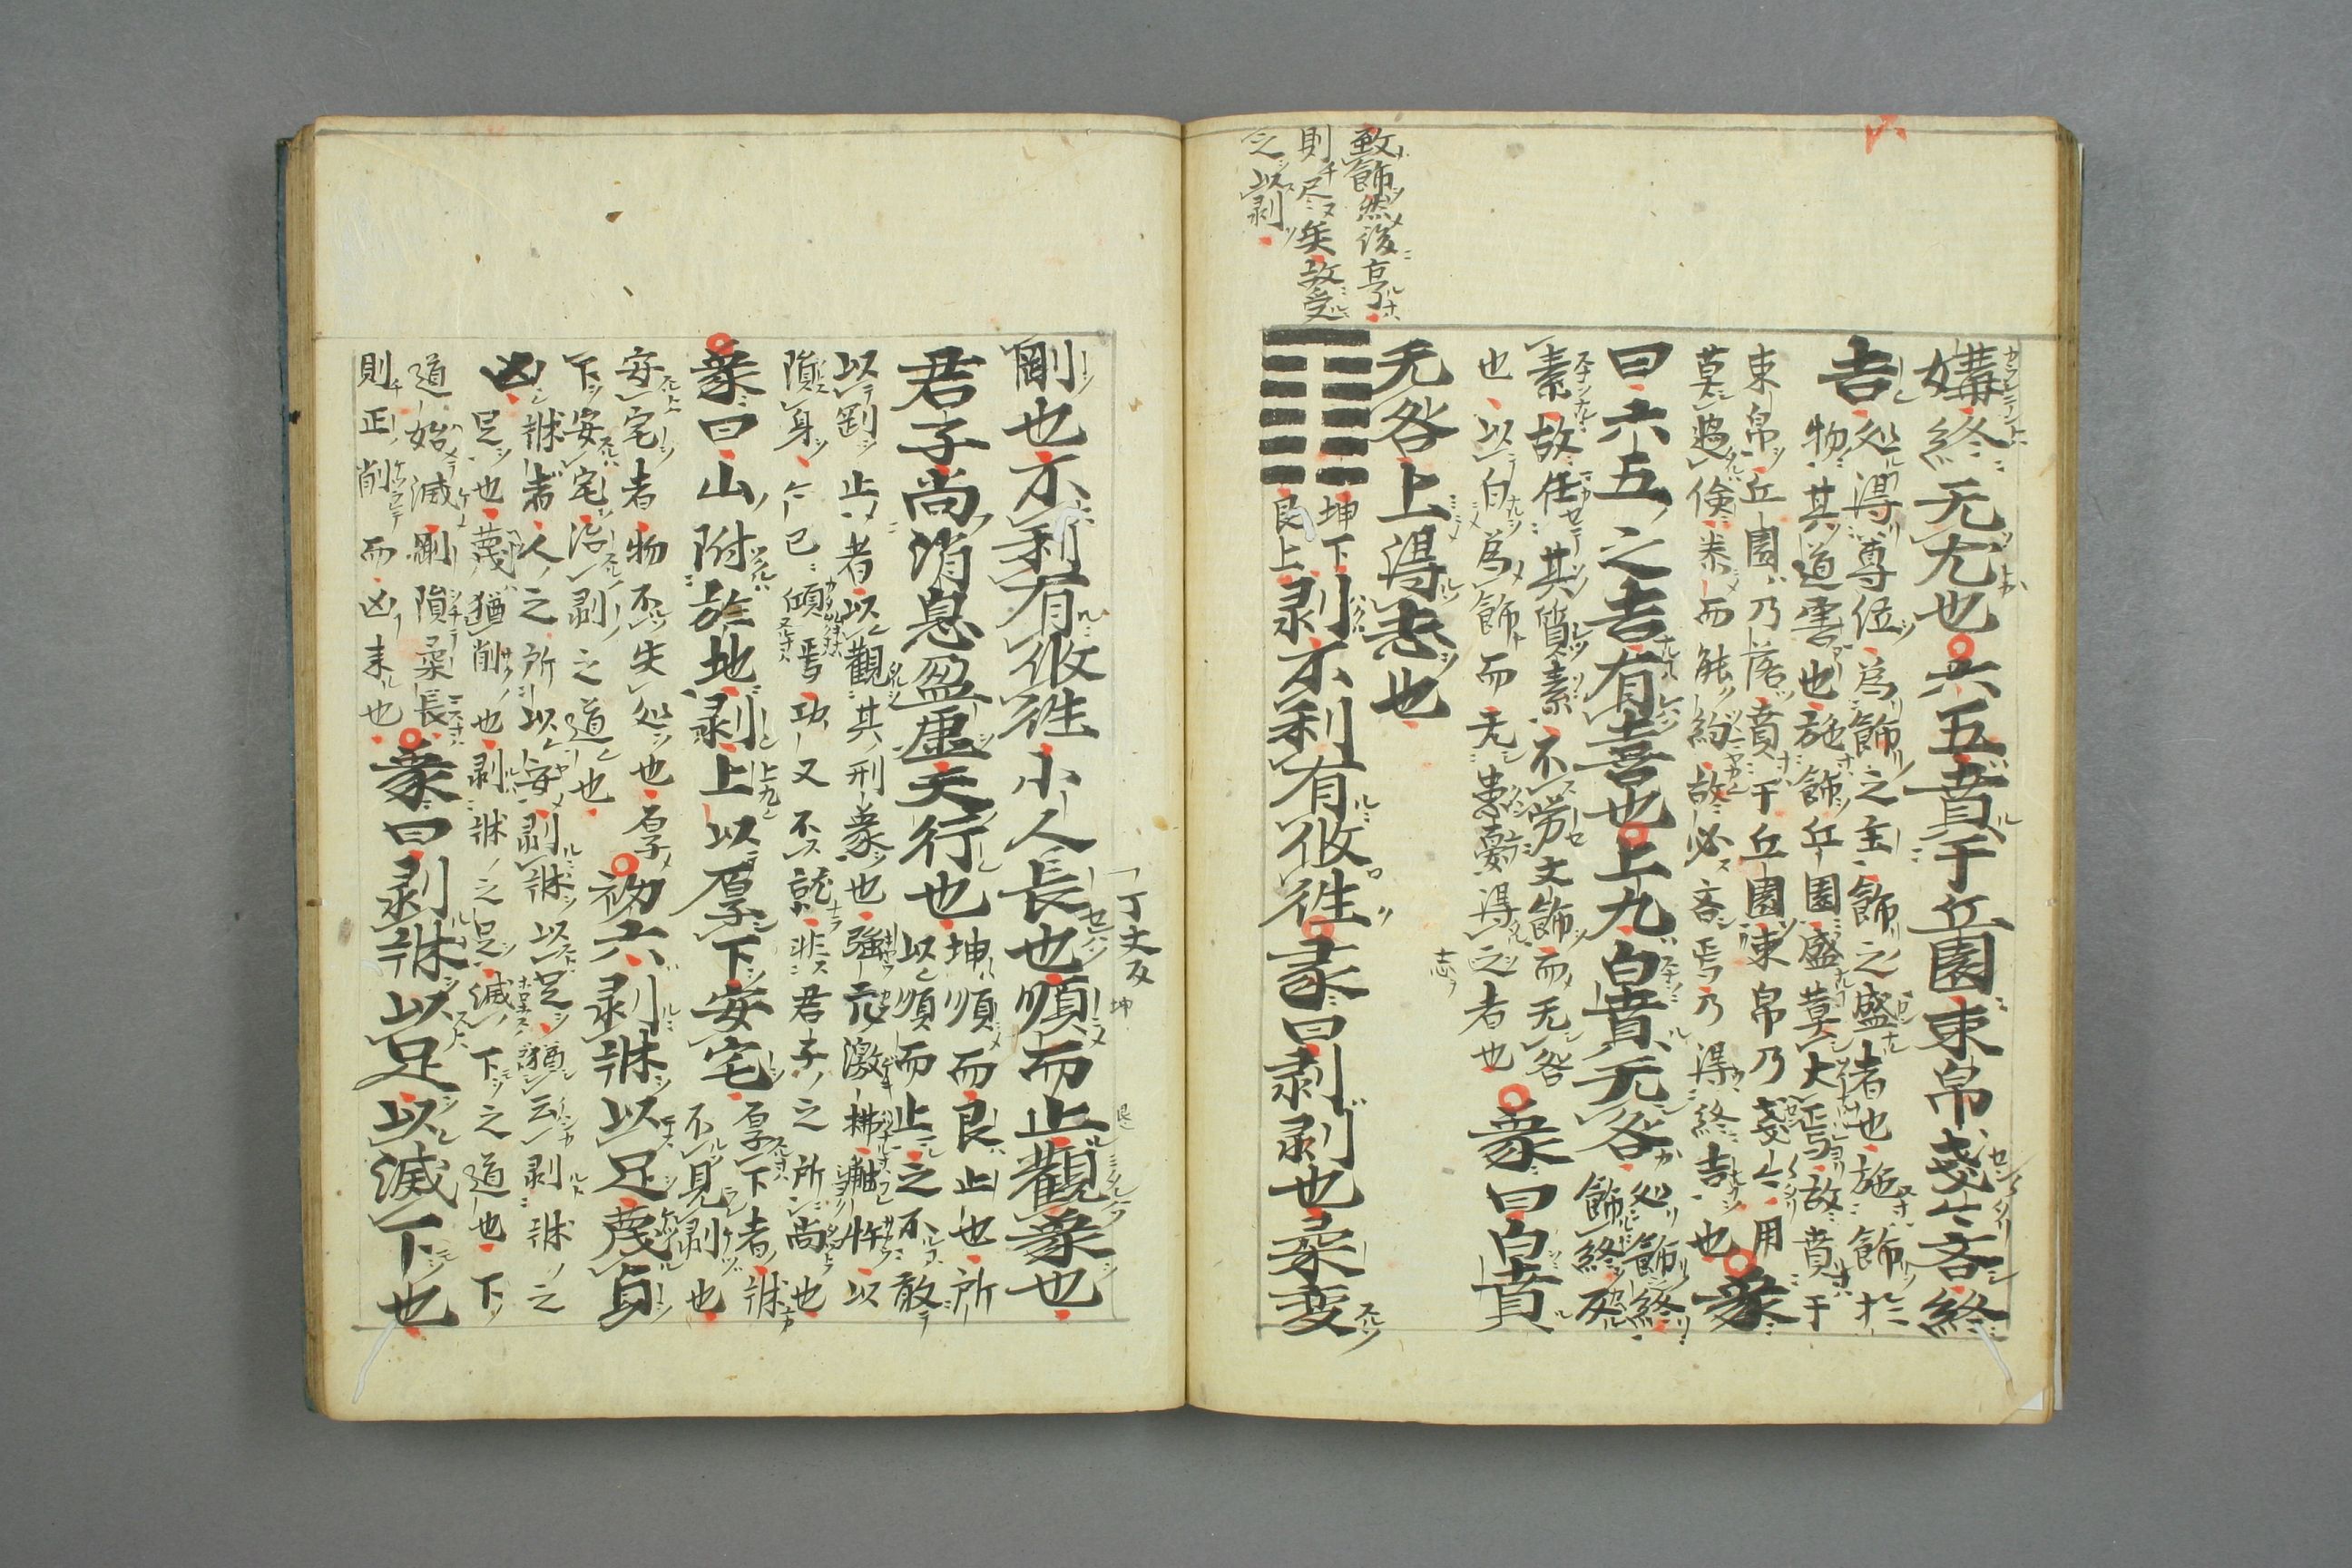 致飾然後亨
則尽矣故受
之以剥
媾終无尤也六五賁于丘園束帛戔〻吝終
吉処得尊位為飾之主飾之盛者也施飾於
物其道害也施飾丘園盛莫大焉故賁于
束帛丘園乃落賁于丘園束帛乃戔〻用
莫過倹泰而能約故必吝焉乃得終吉也象
曰六五之吉有喜也上九白賁无咎処飾終
飾終反
素故任其質素不労文飾而无咎
也以白為飾而无患憂得之者也象曰白賁
志
无咎上得志也
坤下
艮上剥不利有攸往彖曰剥剥也柔変
丁丈反
坤
艮
剛也不利有攸往小人長也順而止観象也
君子尚消息盈虚天行也坤順而艮止也所
以順而止之不敢
以剛止者以観其形象也強亢激拂觸忤以
隕身〻已傾焉功又不就非君子之所尚也
象曰山附於地剥上以厚下安宅厚下者牀
不見剥也
安宅者物不失処也厚
下安宅治剥之道也初六剥牀以足蔑貞
凶牀者人之所以安也剥牀以足猶云剥牀之
足也蔑猶削也剥牀之足滅下之道也下
道始滅剛隕柔長
則正削而凶来也象曰剥牀以足以滅下也